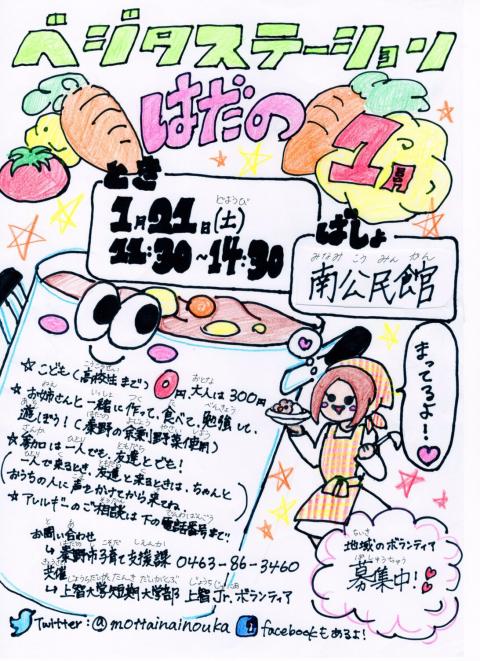 ベジタステーション
はだの
1月
とき
1月21日(土)
どようび
11:30~14:30
ばしょ
みなみ こう みん かん
南公民館
まってるよ!
☆こども(高校生まで)0円、大人は300円
☆お姉さんと一緒に作って、食べて、勉強して、
遊ぼう!(秦野の京割野菜使用)
☆参加は一人でも、友達とでも!
(一人で来るとき、友達と来るときは、ちゃんと
おうちの人に声をかけてから来てね)
☆アレルギーのご相談は下の電話番号まで!!
お問い合わせ
↳秦野市子育て支援課 0463-86-3460
共催
↳上智大学短期大学部 上智Jr.ボランティア
ちいき
地域のボランティア
ぼしゅうちゅう
募集中!
Twitter:@mottainainouka facebookもあるよ!